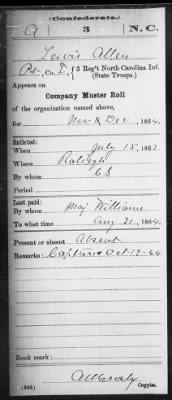 (Confederate.)
A 3 N.C.
Lewis Allen
Pvt, Co. I, 3 Reg't North Carolina Inf.
(State Troops.)
Appears on
Company Muster Roll
of the organization named above,
for Nov & Dec, 1864.
Enlisted:
When July 15, 1862
Where Raleigh
By whom
Period
Last paid:
By whom Maj Williams
To what time Aug 31, 1864.
Present or absent Absent
Remarks: Captured Oct 19-64
Book mark:
(642)
Copyist.